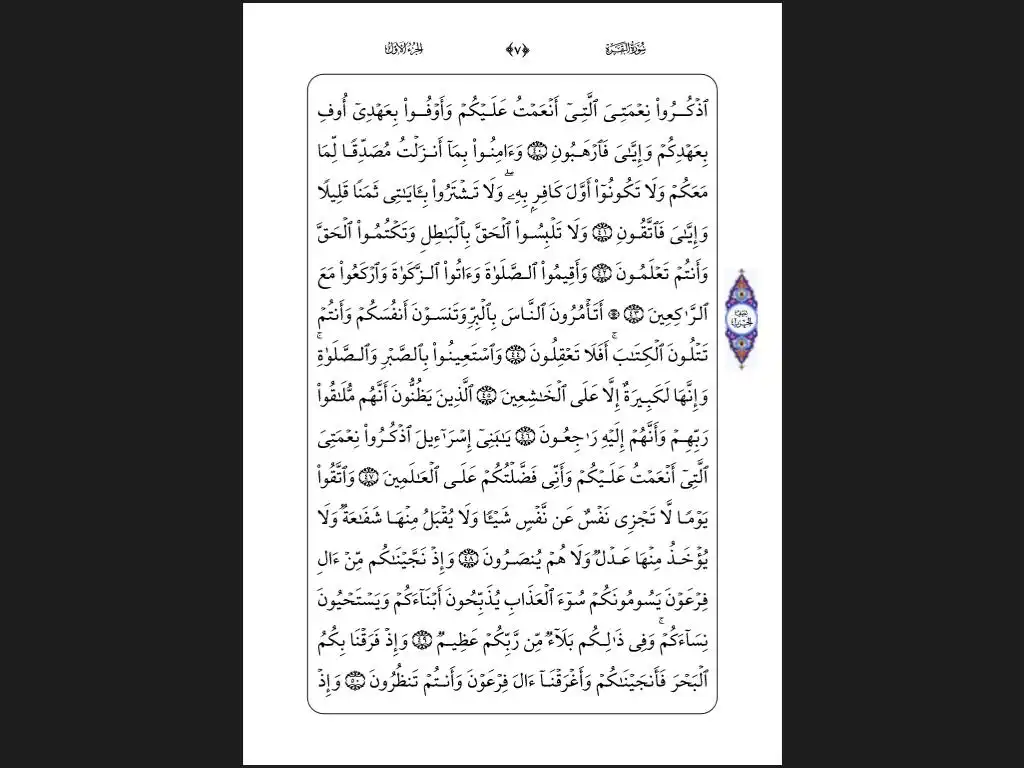 سُورَةُ البَقَرَةِ ﴿٧﴾ الجُزْءُ الأَوَّلُ
ٱذۡكُرُواْ نِعۡمَتِيَ ٱلَّتِيٓ أَنۡعَمۡتُ عَلَيۡكُمۡ وَأَوۡفُواْ بِعَهۡدِيٓ أُوفِ
بِعَهۡدِكُمۡ وَإِيَّٰيَ فَٱرۡهَبُونِ ٤٠ وَءَامِنُواْ بِمَآ أَنزَلۡتُ مُصَدِّقٗا لِّمَا
مَعَكُمۡ وَلَا تَكُونُوٓاْ أَوَّلَ كَافِرِۭ بِهِۦۖ وَلَا تَشۡتَرُواْ بِـَٔايَٰتِي ثَمَنٗا قَلِيلٗا
وَإِيَّٰيَ فَٱتَّقُونِ ٤١ وَلَا تَلۡبِسُواْ ٱلۡحَقَّ بِٱلۡبَٰطِلِ وَتَكۡتُمُواْ ٱلۡحَقَّ
وَأَنتُمۡ تَعۡلَمُونَ ٤٢ وَأَقِيمُواْ ٱلصَّلَوٰةَ وَءَاتُواْ ٱلزَّكَوٰةَ وَٱرۡكَعُواْ مَعَ
ٱلرَّٰكِعِينَ ٤٣ ۞ أَتَأۡمُرُونَ ٱلنَّاسَ بِٱلۡبِرِّ وَتَنسَوۡنَ أَنفُسَكُمۡ وَأَنتُمۡ
تَتۡلُونَ ٱلۡكِتَٰبَۚ أَفَلَا تَعۡقِلُونَ ٤٤ وَٱسۡتَعِينُواْ بِٱلصَّبۡرِ وَٱلصَّلَوٰةِۚ
وَإِنَّهَا لَكَبِيرَةٌ إِلَّا عَلَى ٱلۡخَٰشِعِينَ ٤٥ ٱلَّذِينَ يَظُنُّونَ أَنَّهُم مُّلَٰقُواْ
رَبِّهِمۡ وَأَنَّهُمۡ إِلَيۡهِ رَٰجِعُونَ ٤٦ يَٰبَنِيٓ إِسۡرَٰٓءِيلَ ٱذۡكُرُواْ نِعۡمَتِيَ
ٱلَّتِيٓ أَنۡعَمۡتُ عَلَيۡكُمۡ وَأَنِّي فَضَّلۡتُكُمۡ عَلَى ٱلۡعَٰلَمِينَ ٤٧ وَٱتَّقُواْ
يَوۡمٗا لَّا تَجۡزِي نَفۡسٌ عَن نَّفۡسٖ شَيۡـٔٗا وَلَا يُقۡبَلُ مِنۡهَا شَفَٰعَةٞ وَلَا
يُؤۡخَذُ مِنۡهَا عَدۡلٞ وَلَا هُمۡ يُنصَرُونَ ٤٨ وَإِذۡ نَجَّيۡنَٰكُم مِّنۡ ءَالِ
فِرۡعَوۡنَ يَسُومُونَكُمۡ سُوٓءَ ٱلۡعَذَابِ يُذَبِّحُونَ أَبۡنَآءَكُمۡ وَيَسۡتَحۡيُونَ
نِسَآءَكُمۡۚ وَفِي ذَٰلِكُم بَلَآءٞ مِّن رَّبِّكُمۡ عَظِيمٞ ٤٩ وَإِذۡ فَرَقۡنَا بِكُمُ
ٱلۡبَحۡرَ فَأَنجَيۡنَٰكُمۡ وَأَغۡرَقۡنَآ ءَالَ فِرۡعَوۡنَ وَأَنتُمۡ تَنظُرُونَ ٥٠ وَإِذۡ